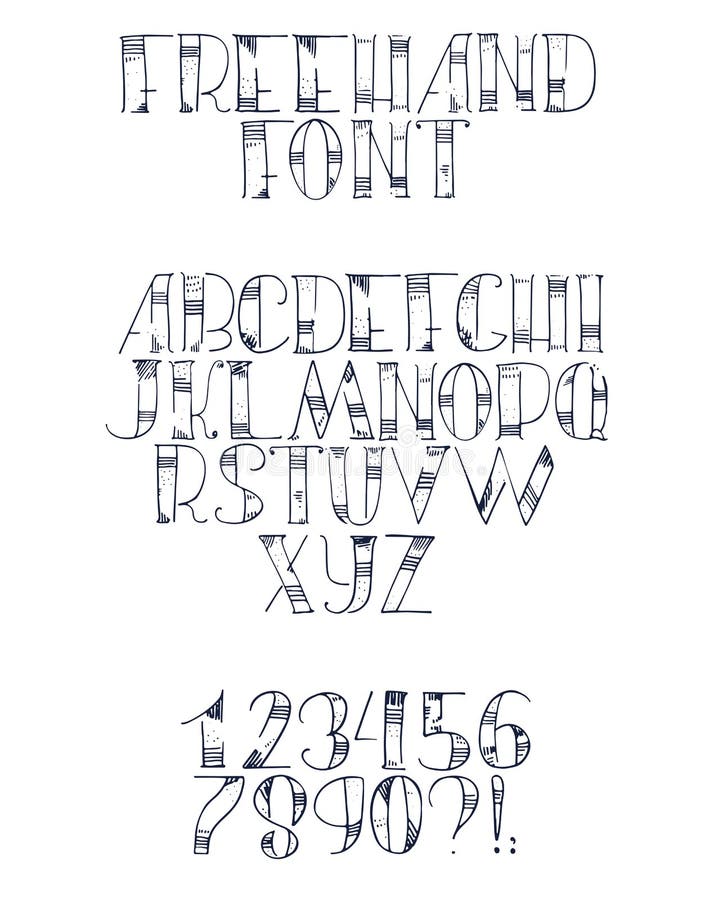 FREEHAND
FONT
ABCDEFGHI
JKLMNOPQ
RSTUVW
XYZ
123456
7890?!.,